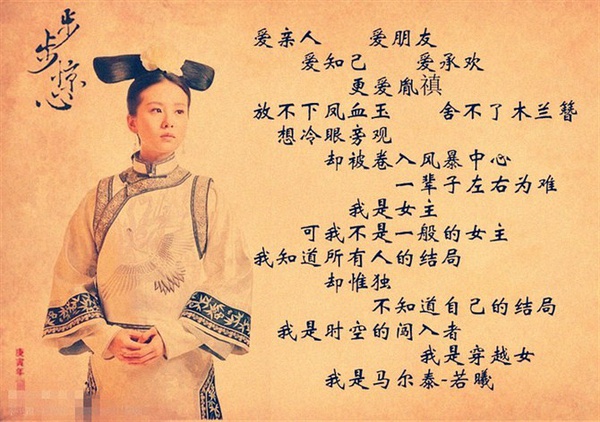 步步惊心
爱亲人 爱朋友
爱知己 爱承欢
更爱胤禛
放不下凤血玉 舍不了木兰簪
想冷眼旁观
却被卷入风暴中心
一辈子左右为难
我是女主
可我不是一般的女主
我知道所有人的结局
却惟独
不知道自己的结局
我是时空的闯入者
我是穿越女
我是马尔泰-若曦
庚寅年